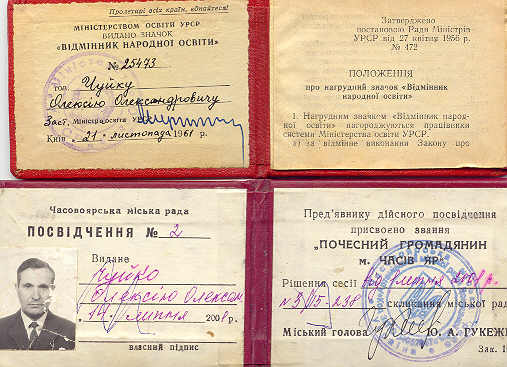 Пролетарі всіх країн, єднайтеся!
МІНІСТЕРСТВОМ ОСВІТИ УРСР
ВИДАНО ЗНАЧОК
«ВІДМІННИК НАРОДНОЇ ОСВІТИ»
№ 25473
тов. Чуйку
Олексію Олександровичу
Заст. Міністра освіти УРСР
Київ „21" листопада 1961 р.
Затверджено
постановою Ради Міністрів
УРСР від 27 квітня 1956 р.
№ 472
ПОЛОЖЕННЯ
про нагрудний значок «Відмінник
народної освіти»
1. Нагрудним значком «Відмінник народ-
ної освіти» нагороджуються працівники
системи Міністерства освіти УРСР.
а) за відмінне виконання Закону про
Часовоярська міська рада
ПОСВІДЧЕННЯ № 2
Видане
Чуйко
Олексію Олексан
14 липня 2001 р.
власний підпис
Пред'явнику дійсного посвідчення
присвоєно звання
"ПОЧЕСНИЙ ГРОМАДЯНИН
м. ЧАСІВ ЯР"
Рішення сесії від липня р.
скликання міської рад
Міський голова Ю. А. ГУКЕЖ
Зак. 1